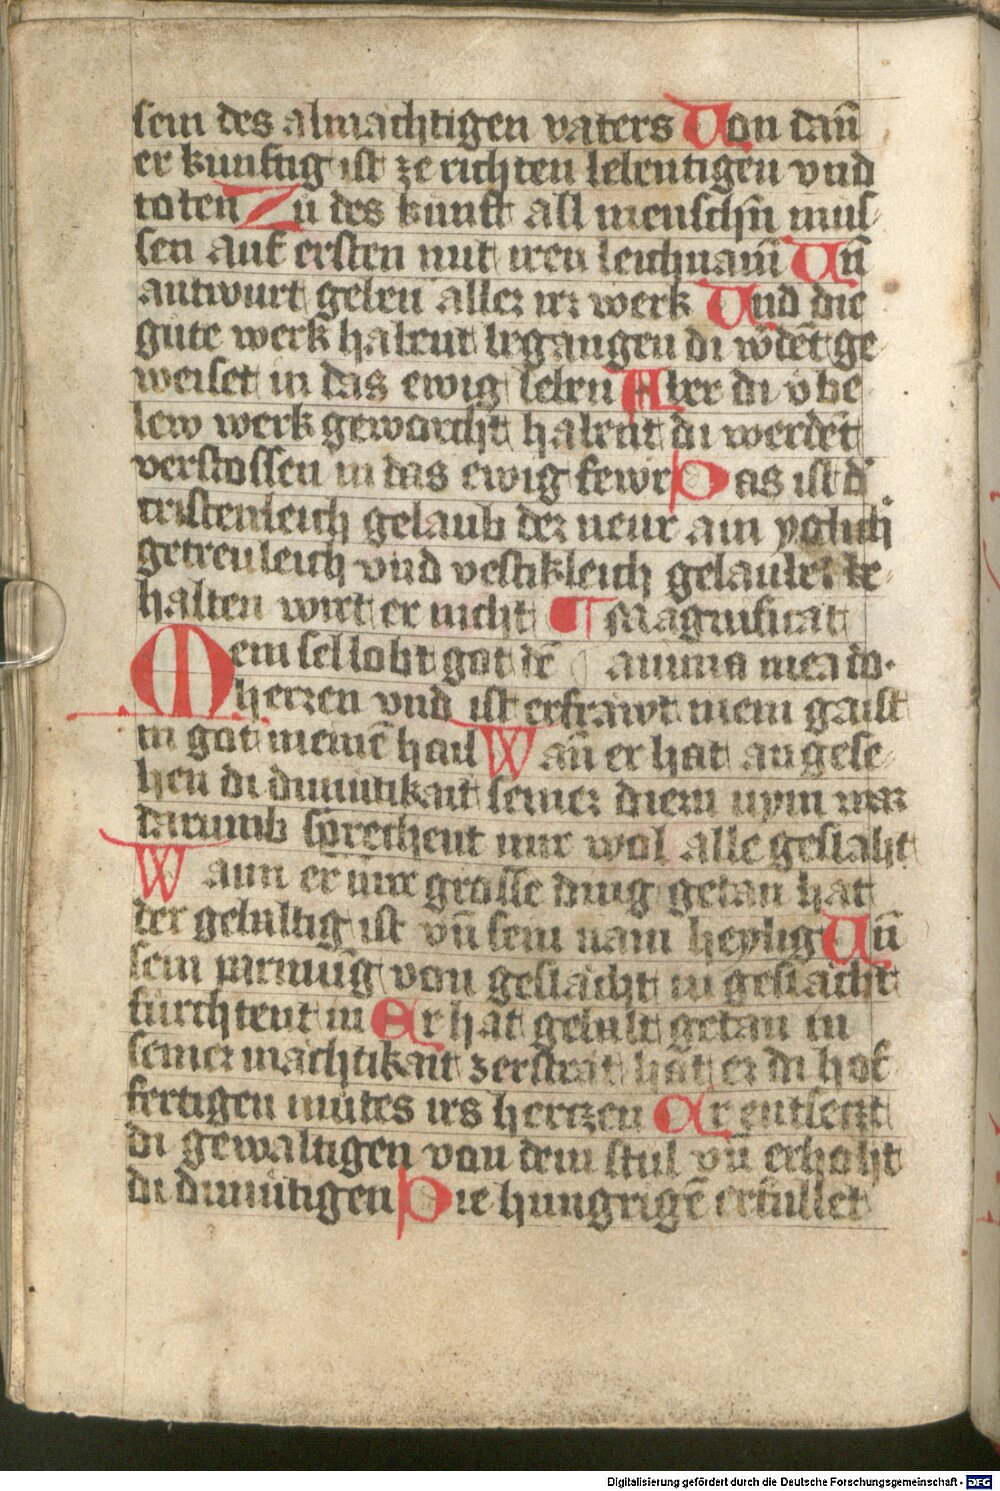 sein des almachtigen vaters Von dañ
er kunftig ist ze richten lebentigen vnd
toten Zu des kunft all menschñ mus-
sen auf ersten mit iren leichnam̃ Vñ
antwurt geben aller irr werk Vnd die
gute werk habent begangen di wdẽt ge-
weiset in das ewig leben Aber di vbe-
lew werk geworcht habent di werdẽt
verstossen in das ewig fewr Das ist d'
cristenleich gelaub der neur ain yglich
getreuleich vnd vestikleich gelaube be-
halten wirt er nicht ¶ Magnificat
Mein sel lobt got dẽ anima mea do.
herren vnd ist erfrawt mein gaist
in got meinẽ hail Wañ er hat angese-
hen di dimutikait seiner diern nym war
darumb sprechent mir wol alle geslaht
Wann er mir grosse ding getan hat
der gebaltig ist vñ sein nam heylig Vñ
sein parmũg von geslacht in geslacht
furchtent in Er hat gebalt getan in
seiner machtikait zerstrat hat er di hof-
fertigen mutes irs hertzen Er entseczt
di gewaltigen von dem stul vñ erhoht
di dimutigen Die hungrigẽ erfullet
Digitalisierung gefördert durch die Deutsche Forschungsgemeinschaft - DFG